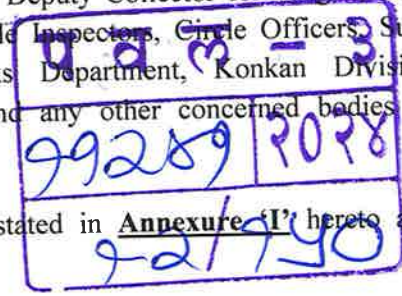 Deputy Collector
le Inspectors, Circle Officers, Su
प व ल - ३
s Department, Konkan Divisi
nd any other concerned bodies
२०२४
stated in Annexure 'I' hereto a
१२/१५०